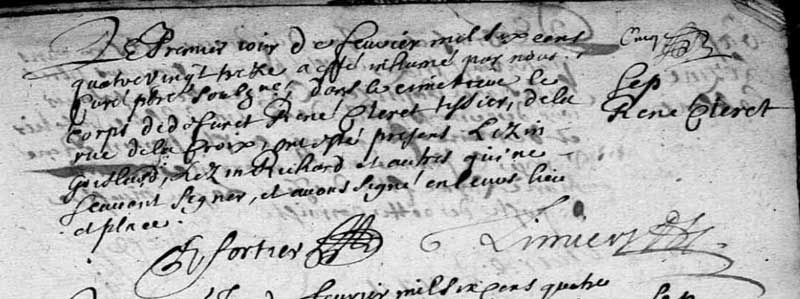 Le Premier jour de feuvier mil six cens
quatre vingt treize a esté inhumé par nous
Curé prbre Soubsigné, dans le cimetiere le
Corps de defunct René Cleret tissier, de la
rue de la Croix, ont esté present Lezin
Lezin Richard et autres qui ne
scavent signer, et avons signé en leurs lieu
et place.
Sep
René Cleret
Fortier
Limier
feuvrier mil six cens quatre
Sep